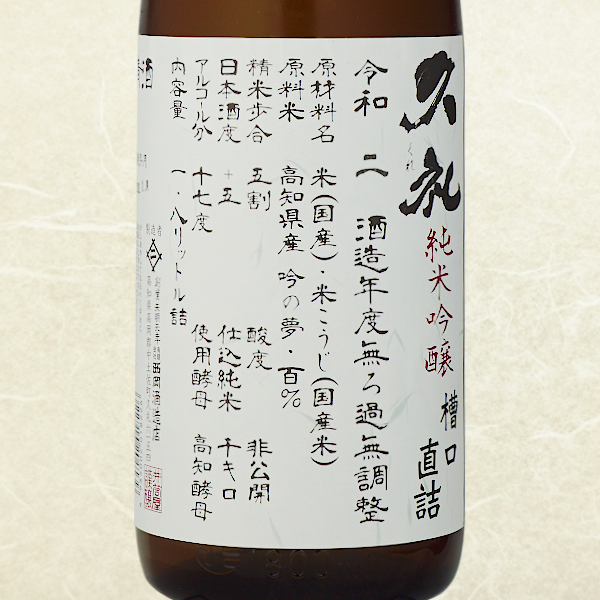 久礼
くれ
純米吟醸
槽口
直詰
令和二酒造年度無ろ過無調整
原材料名 米(国産)・米こうじ(国産米)
原料米 高知県産 吟の夢・百%
精米歩合 五割 酸度 非公開
日本酒度 +五 仕込純米 千キロ
アルコール分 十七度 使用酵母 高知酵母
内容量 一・八リットル詰
製造者
西岡酒造店